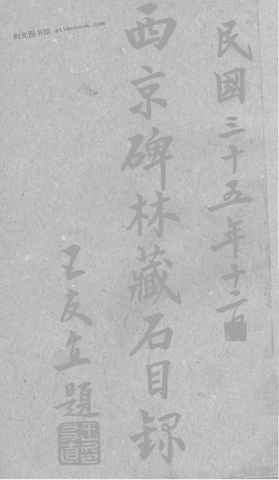 民國三十五年十二月
西京碑林藏石目錄
王友直題